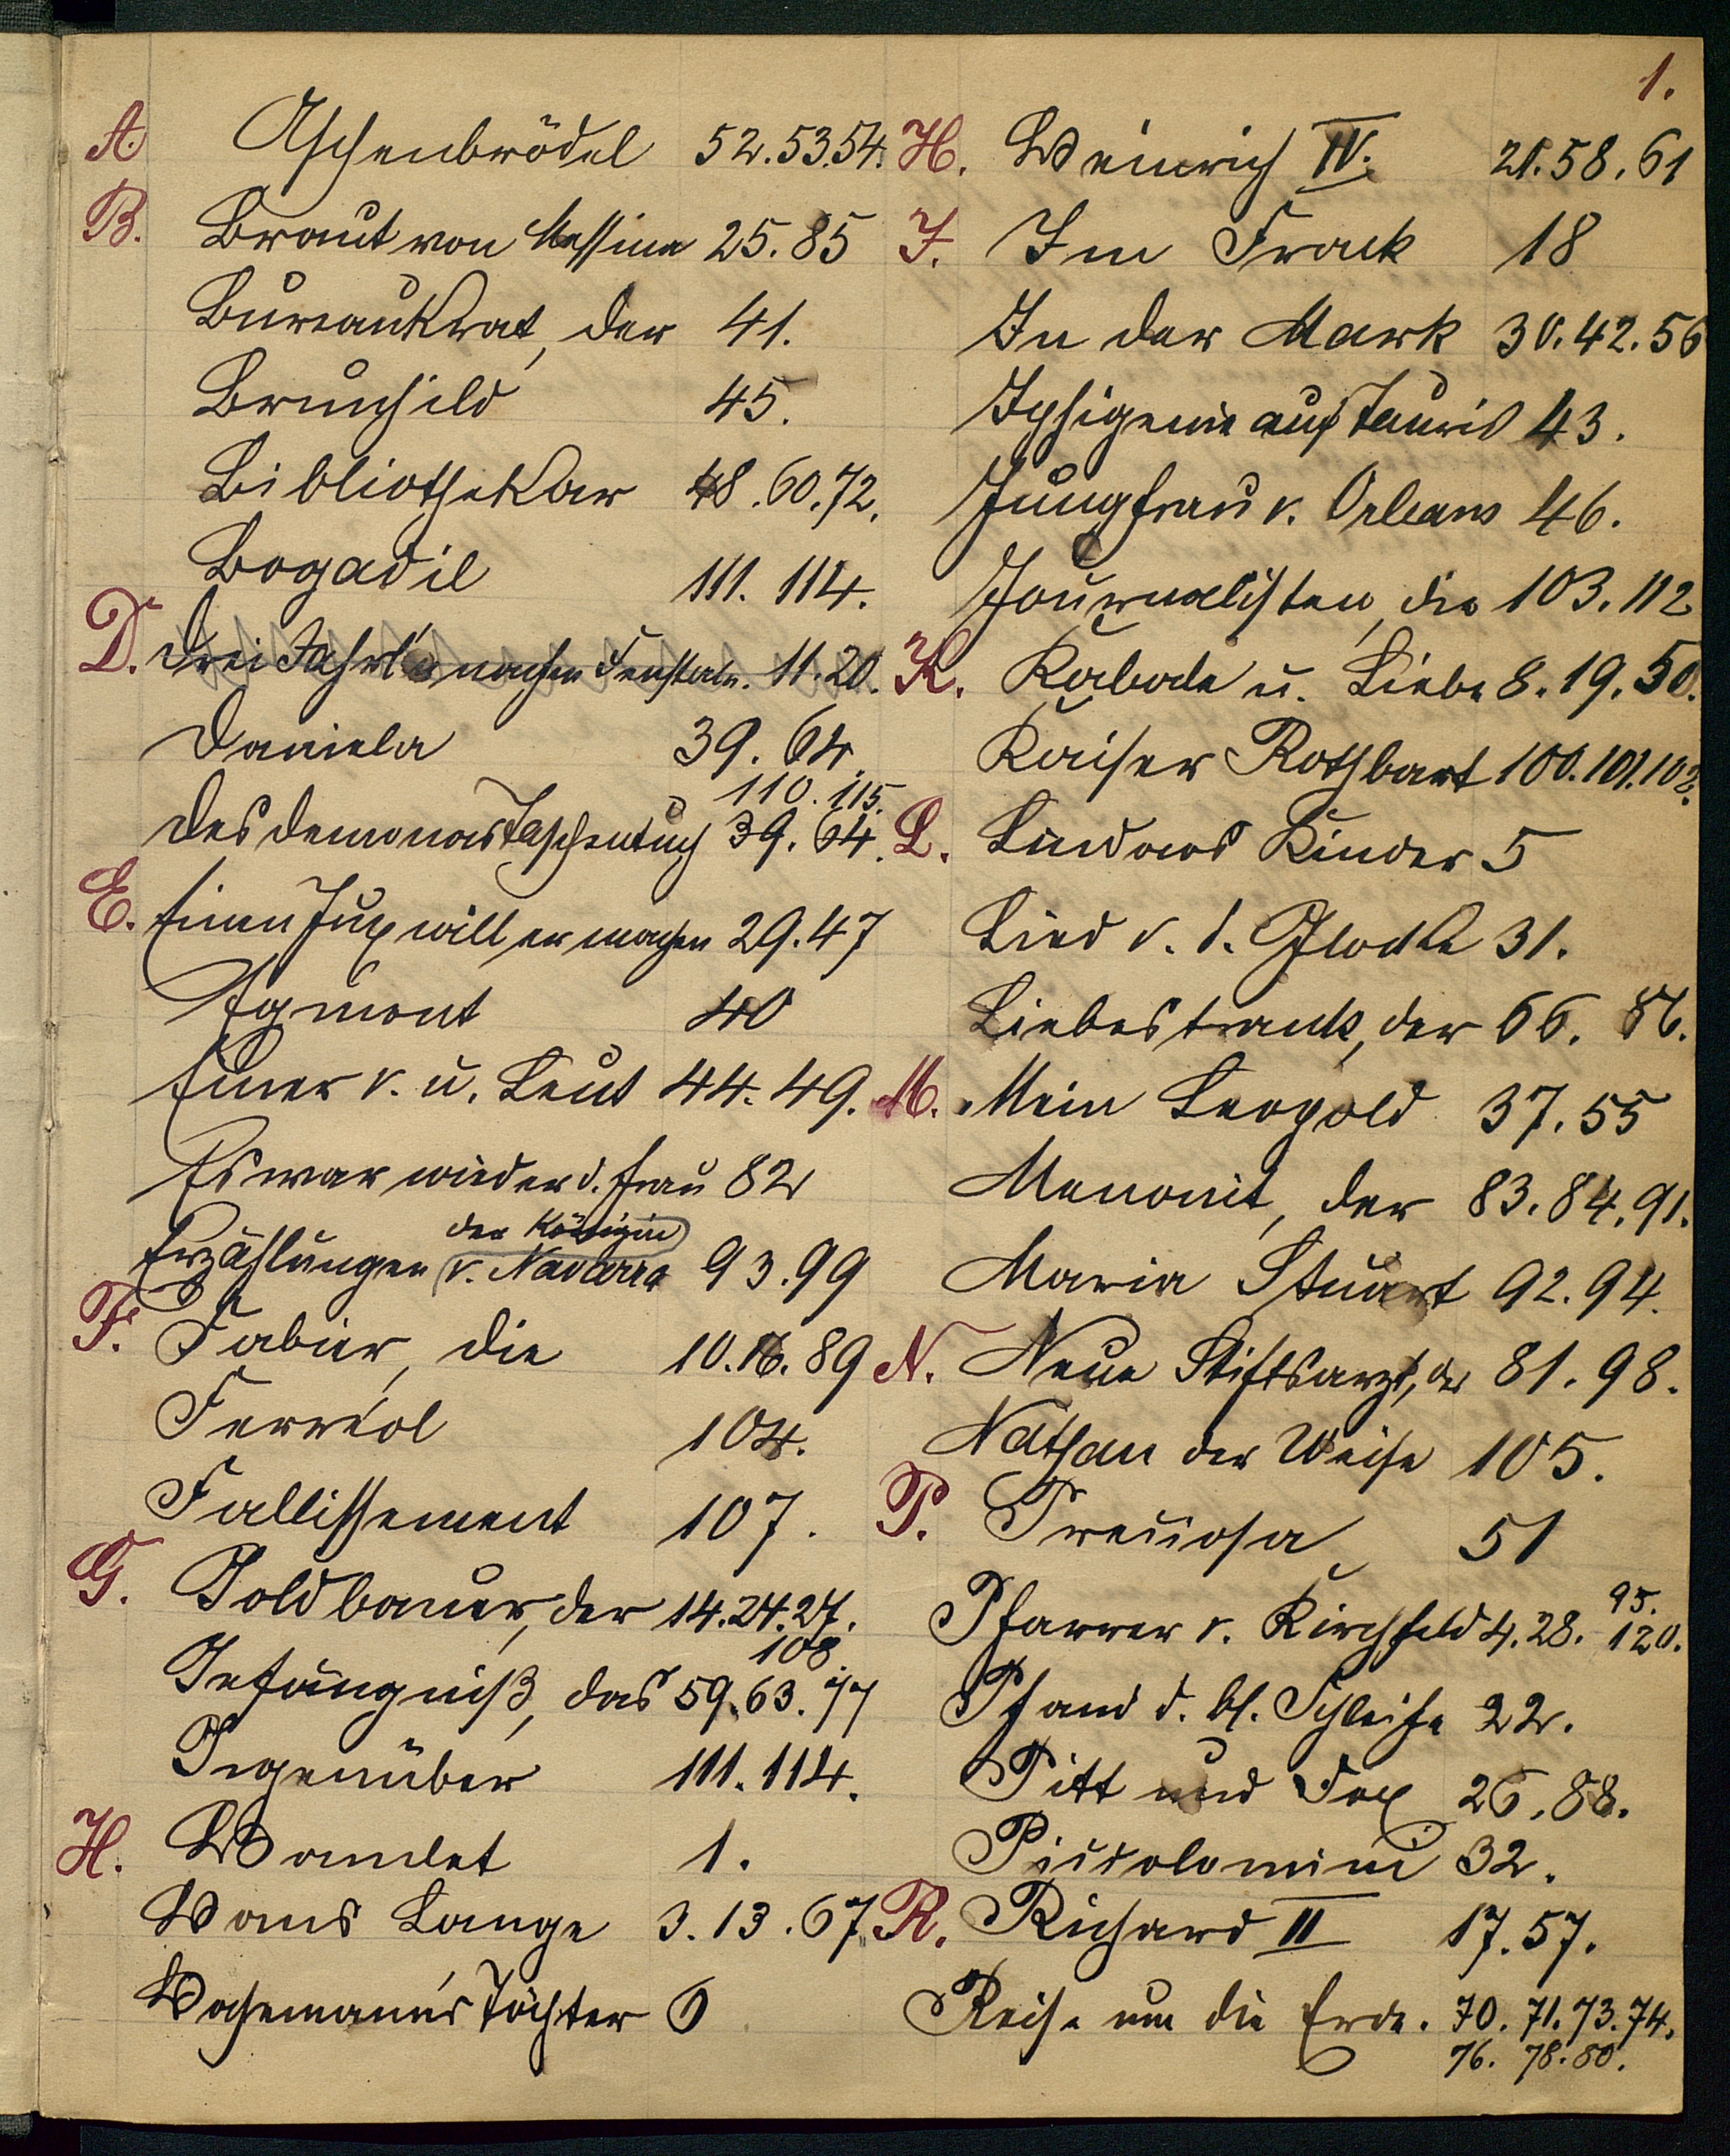 1.
A. Aschenbrödel 52.53.54.
B. Braut von Messina 25.85
Bureaukrat, der 41.
Brunhild 45.
Bibliothekar 48.60.72.
Bogadil 111.114.
D. Drei Jahrl'n nachen Fensterln. 11.20.
Daniela 39.64.
110.115.
Desdemonas Taschentuch 39.64.
E. Einen Jux will er machen 29.47
Egmont 40
Einer v. u. Leut 44.49.
Es war wieder d. Frau 82
der Königin
Erzählungen v. Navarra 93.99
F. Fabier, die 10.16.89
Ferréol 104.
Fallissement 107.
G. Goldbauer, der 14.24.27.
108.
Gefängniß, das 59.63.77
Gegenüber 111.114.
H. Hamlet 1.
Hans Lange 3.13.67.
Hasemann's Töchter 6
H. Heinrich IV. 21.58.61
I. Im Frack 18
In der Mark 30.42.56
Iphigenie auf Tauris 43.
Jungfrau v. Orleans 46.
Journalisten, die 103.112
K. Kabale u. Liebe 8.19.50.
Kaiser Rothbart 100.101.102.
L. Lindows Kinder 5
Lied v. d. Glocke 31.
Liebestrank, der 66. 86.
M. Mein Leopold 37.55
Menonit, der 83.84.91.
Maria Stuart 92.94.
N. Neue Stiftsarzt, der 81.98.
Nathan der Weise 105.
P. Preciosa 51
95.
Pfarrer v. Kirchfeld 4.28. 120.
Pfand d. bl. Schleife 22.
Pitt und Fox 26.88.
Piccolomini 32.
R. Richard II 17.57.
Reise um die Erde. 70.71.73.74.
76. 78.80.